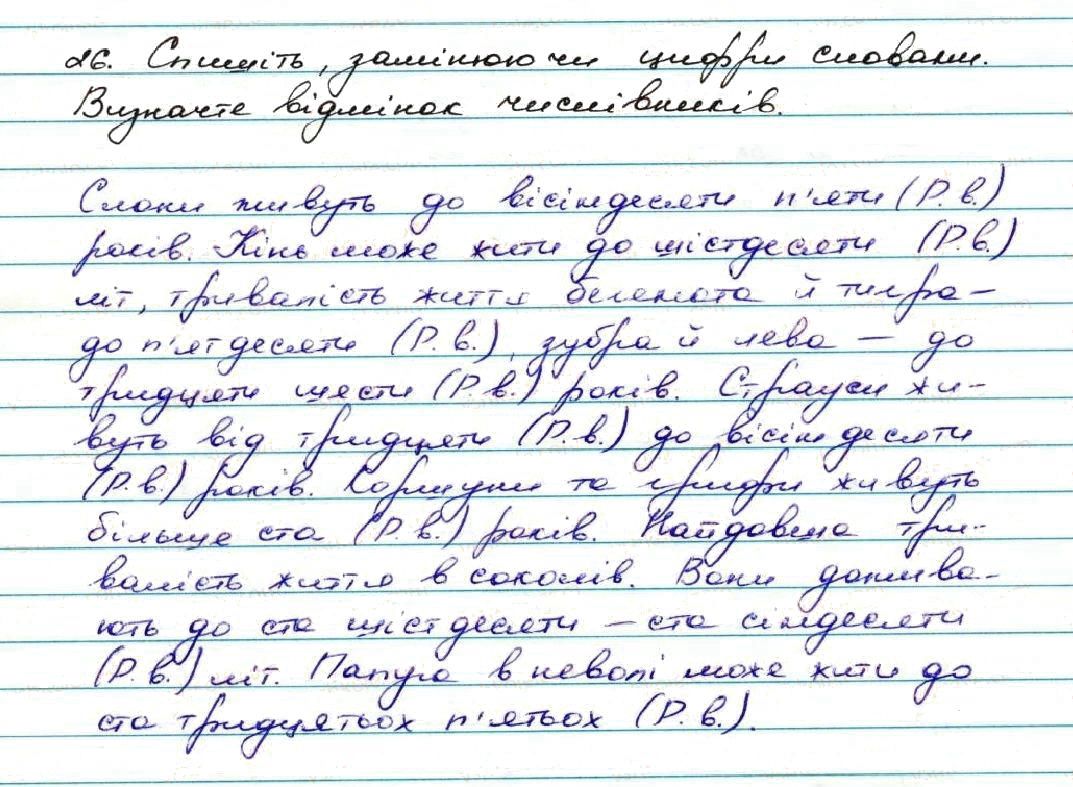 26. Спишіть, замінюючи цифри словами.
Визначте відмінок числівників.
Слони живуть до вісімдесяти п'яти (Р.в.)
років. Кінь може жити до шістдесяти (Р.в.)
літ, тривалість життя бегемота й тигра –
до п'ятдесяти (Р.в.), зубра й лева – до
тридцяти шести (Р.в.) років. Страуси жи-
вуть від тридцяти (Р.в.) до вісімдесяти
(Р.в.) років. Коршуни та грифи живуть
більше ста (Р.в.) років. Найдовша три-
валість життя в соколів. Вони дожива-
ють до ста шістдесяти – ста сімдесяти
(Р.в.) літ. Папуга в неволі може жити до
ста тридцятьох п'ятьох (Р.в.).